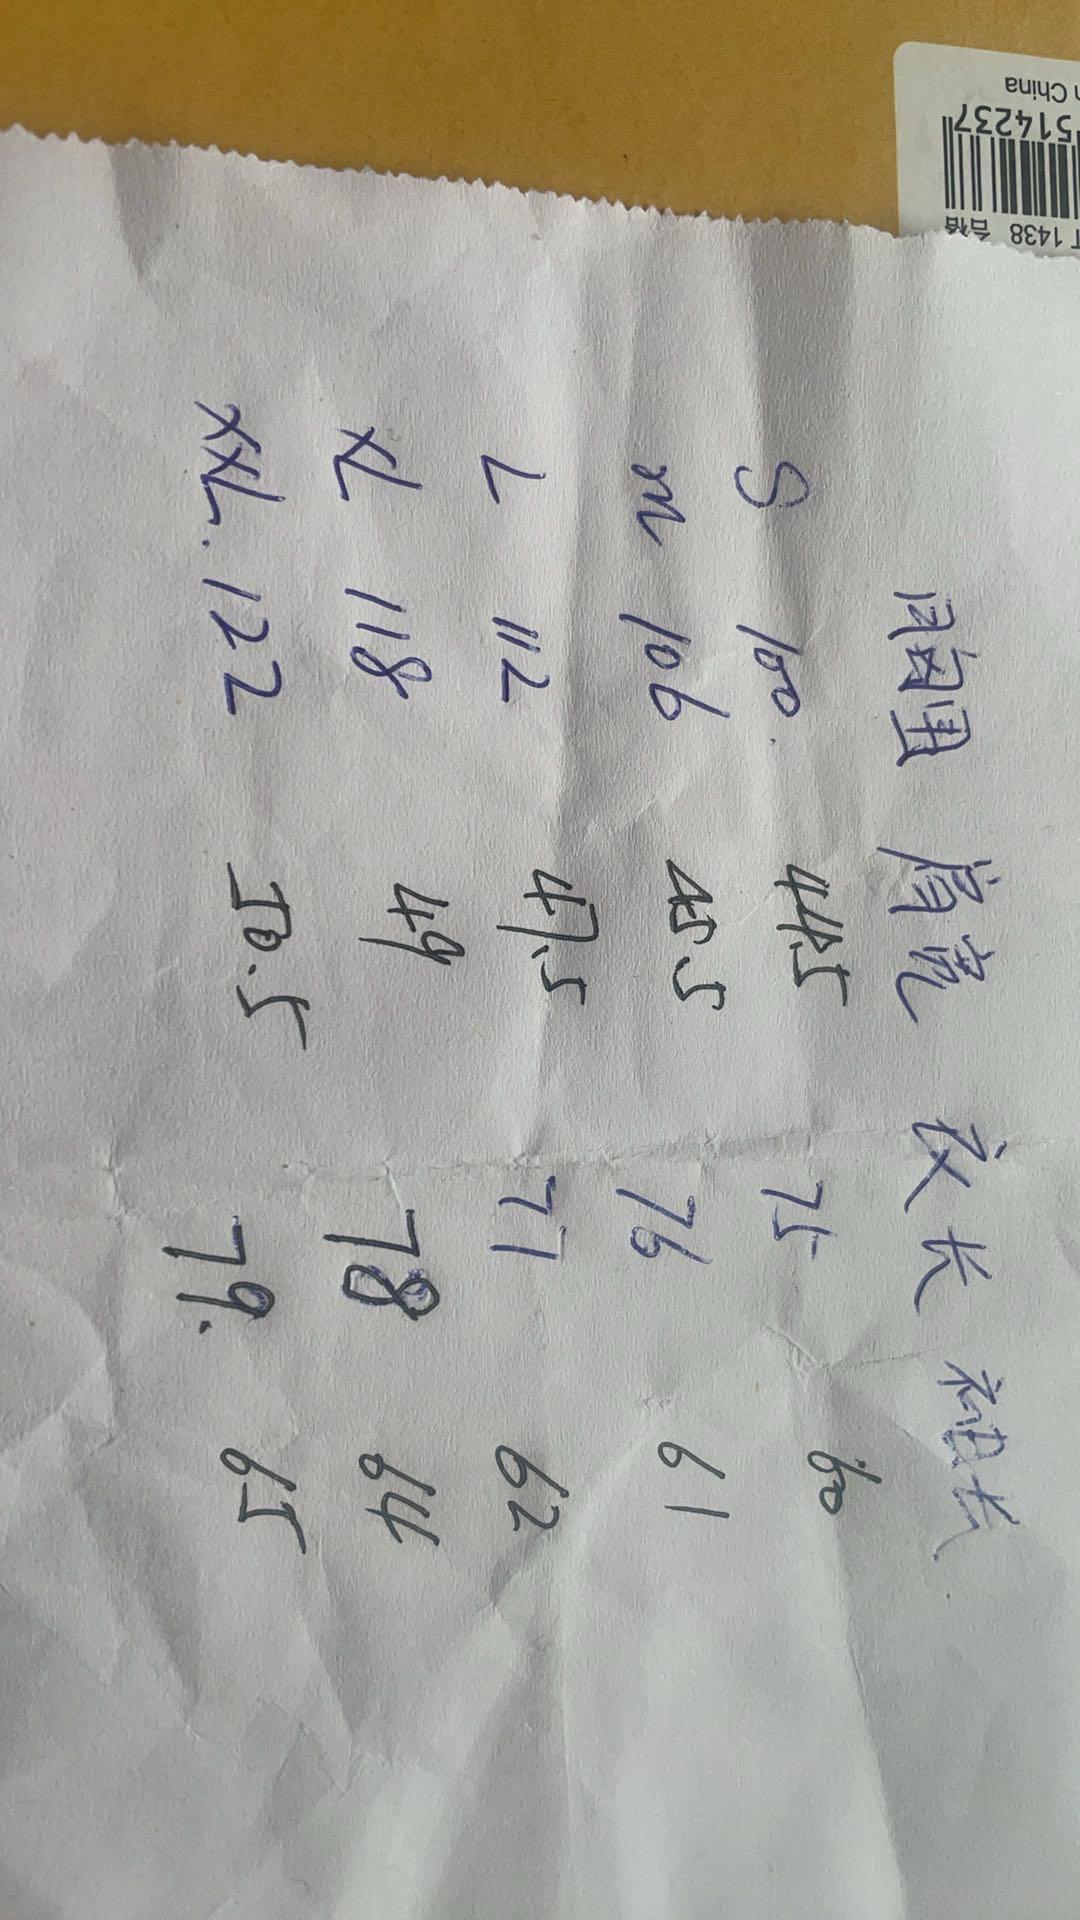 胸围 肩宽 衣长 袖长
S 100. 44.5 75 60
M 106 45.5 76 61
L 112 47.5 77 62
XL 118 49 78 64
XXL. 122 50.5 79. 65
T 1438 合格
514237
n China